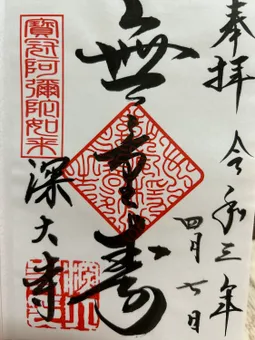 奉拝
令和三年
四月七日
無量壽
寳冠阿彌陀如来
深大寺